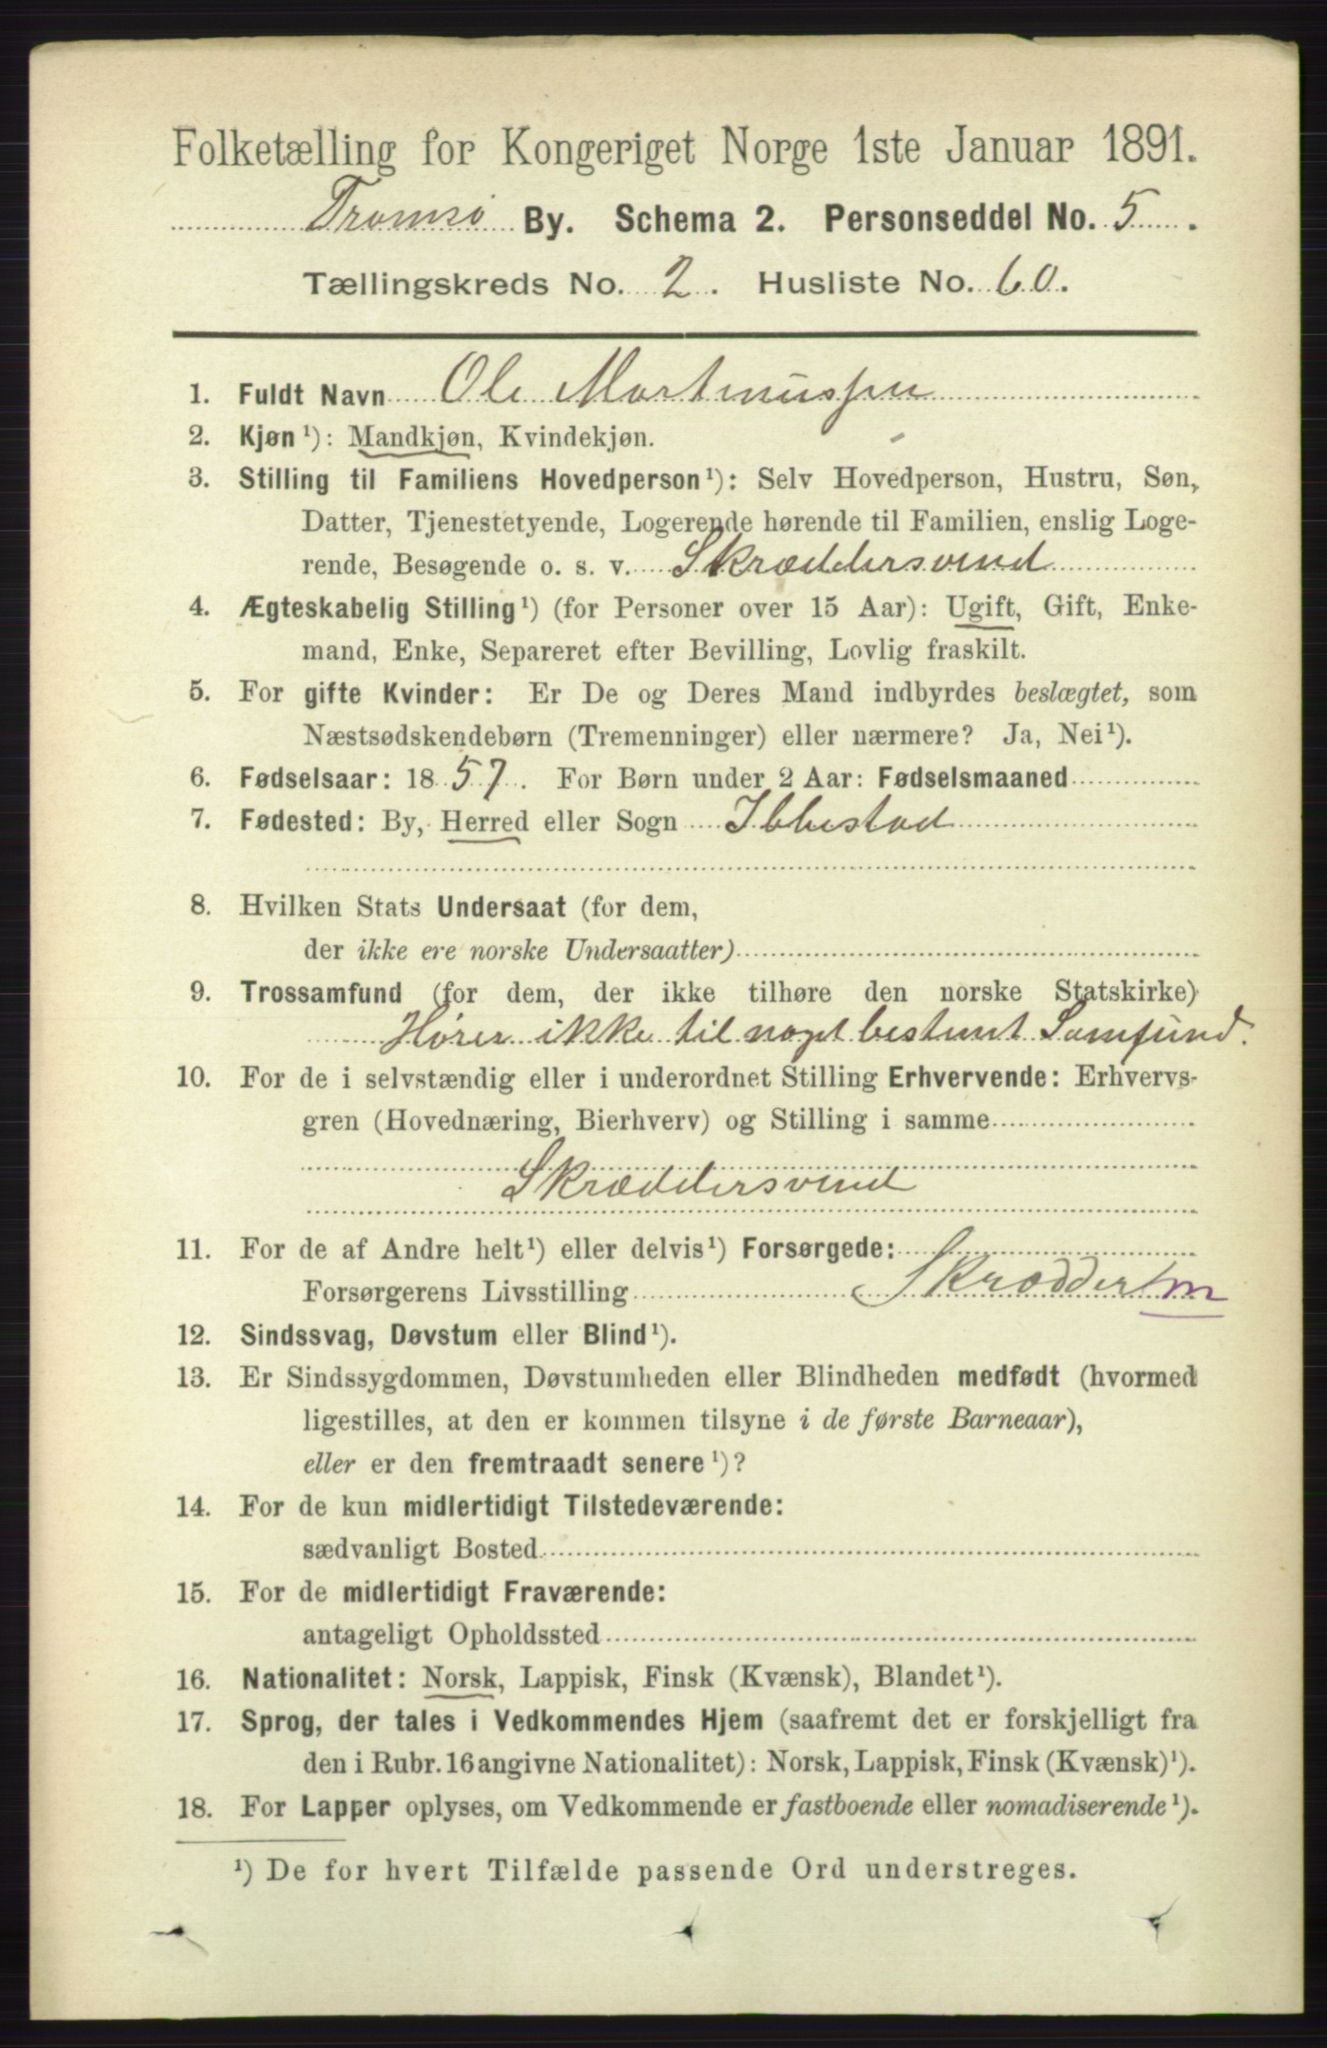 Folketælling for Kongeriget Norge 1ste Januar 1891.
Tromsø By. Schema 2. Personseddel No. 5.
Tællingskreds No. 2. Husliste No. 60.
1. Fuldt Navn Ole Martinussen
2. Kjøn¹): Mandkjøn, Kvindekjøn.
3. Stilling til Familiens Hovedperson¹): Selv Hovedperson, Hustru, Søn,
Datter, Tjenestetyende, Logerende hørende til Familien, enslig Loge-
rende, Besøgende o. s. v. Skræddersvend
4. Ægteskabelig Stilling¹) (for Personer over 15 Aar): Ugift, Gift, Enke-
mand, Enke, Separeret efter Bevilling, Lovlig fraskilt.
5. For gifte Kvinder: Er De og Deres Mand indbyrdes beslægtet, som
Næstsødskendebørn (Tremenninger) eller nærmere? Ja, Nei¹).
6. Fødselsaar: 1857. For Børn under 2 Aar: Fødselsmaaned
7. Fødested: By, Herred eller Sogn Ibbestad
8. Hvilken Stats Undersaat (for dem,
der ikke ere norske Undersaatter)
9. Trossamfund (for dem, der ikke tilhøre den norske Statskirke)
Hører ikke til noget bestemt Samfund.
10. For de i selvstændig eller i underordnet Stilling Erhvervende: Erhvervs-
gren (Hovednæring, Bierhverv) og Stilling i samme
Skræddersvend
11. For de af Andre helt¹) eller delvis¹) Forsørgede:
Forsørgerens Livsstilling Skrædder m
12. Sindssvag, Døvstum eller Blind¹).
13. Er Sindssygdommen, Døvstumheden eller Blindheden medfødt (hvormed
ligestilles, at den er kommen tilsyne i de første Barneaar),
eller er den fremtraadt senere¹)?
14. For de kun midlertidigt Tilstedeværende:
sædvanligt Bosted
15. For de midlertidigt Fraværende:
antageligt Opholdssted
16. Nationalitet: Norsk, Lappisk, Finsk (Kvænsk), Blandet¹).
17. Sprog, der tales i Vedkommendes Hjem (saafremt det er forskjelligt fra
den i Rubr. 16 angivne Nationalitet): Norsk, Lappisk, Finsk (Kvænsk)¹).
18. For Lapper oplyses, om Vedkommende er fastboende eller nomadiserende¹).
¹) De for hvert Tilfælde passende Ord understreges.